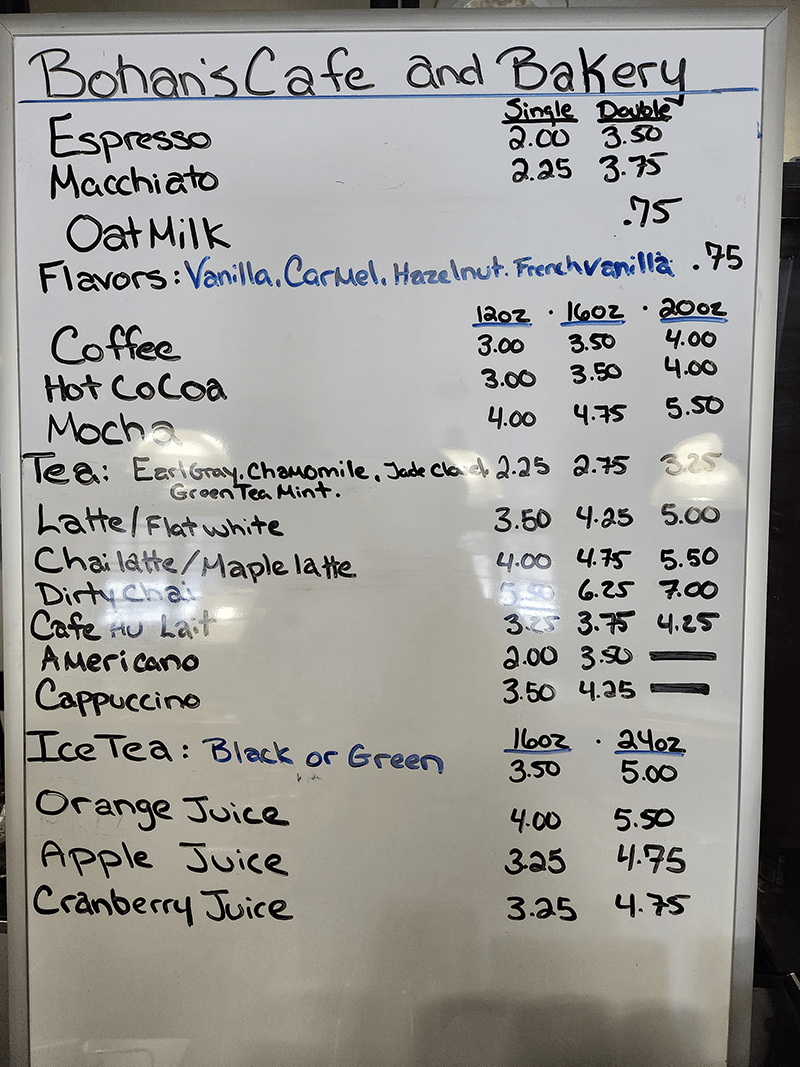 Bohan's Cafe and Bakery
Single Double
Espresso 2.00 3.50
Macchiato 2.25 3.75
Oat Milk .75
Flavors: Vanilla. Carmel. Hazelnut. French vanilla .75
12oz · 16oz · 20oz
Coffee 3.00 3.50 4.00
Hot CoCoa 3.00 3.50 4.00
Mocha 4.00 4.75 5.50
Tea: Earl Gray, Chamomile, Jade Cloud, 2.25 2.75 3.25
Green Tea Mint.
Latte/Flat white 3.50 4.25 5.00
Chai latte/Maple latte 4.00 4.75 5.50
Dirty Chai 5.50 6.25 7.00
Cafe Au Lait 3.25 3.75 4.25
Americano 2.00 3.50 —
Cappuccino 3.50 4.25 —
16oz · 24oz
Ice Tea: Black or Green 3.50 5.00
Orange Juice 4.00 5.50
Apple Juice 3.25 4.75
Cranberry Juice 3.25 4.75